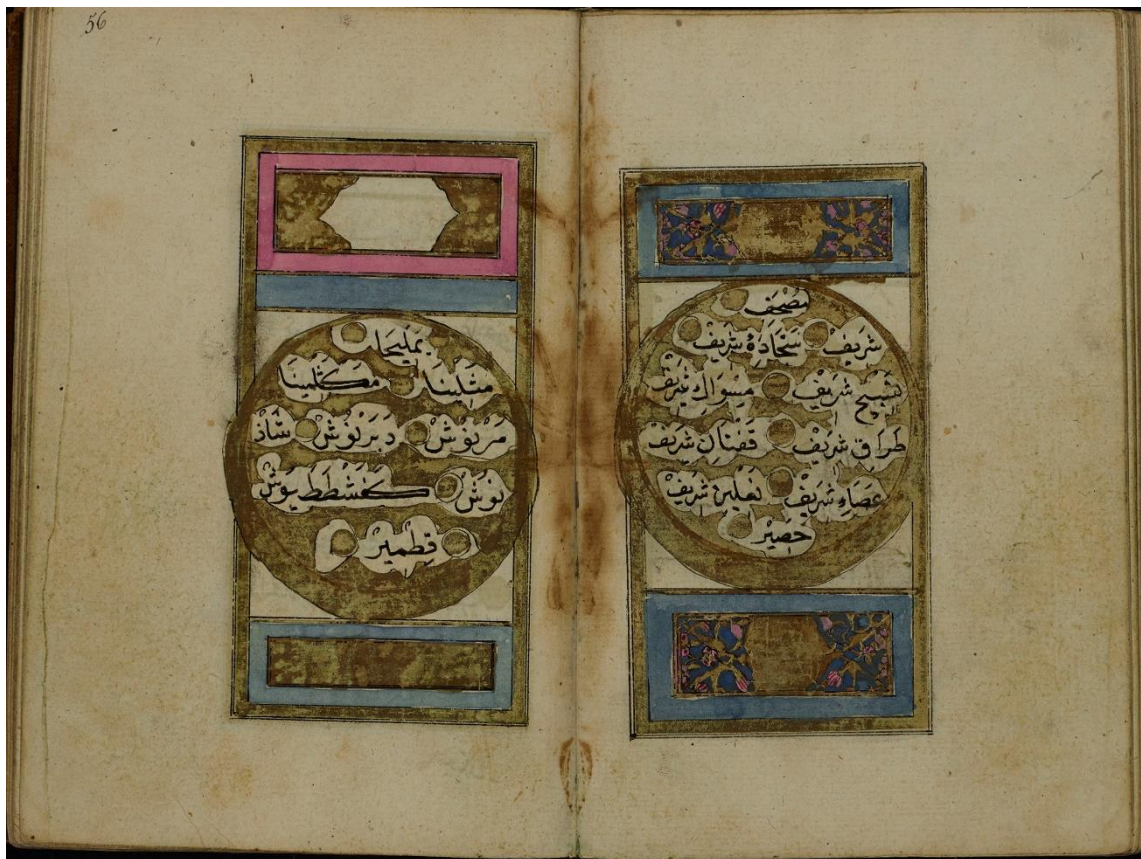 مُصْحَفِ
شَرِيفْ سَجَّادَهُٔ شَرِيفْ
تَسْبِيحِ شَرِيفْ مِسْوَاكِ شَرِيفْ
طَرَاقِ شَرِيفْ قَفْتَانِ شَرِيفْ
عَصَاءِ شَرِيفْ نَعْلَيْنِ شَرِيفْ
حَصِيرْ
56
يَمْلِيخَا
مَثَلِينَا مَكْثَلِينَا
مَرْنُوشْ دَبَرْنُوشْ شَاذَ
نُوشْ كَفَشْطَطَيُوشْ
قِطْمِيرْ